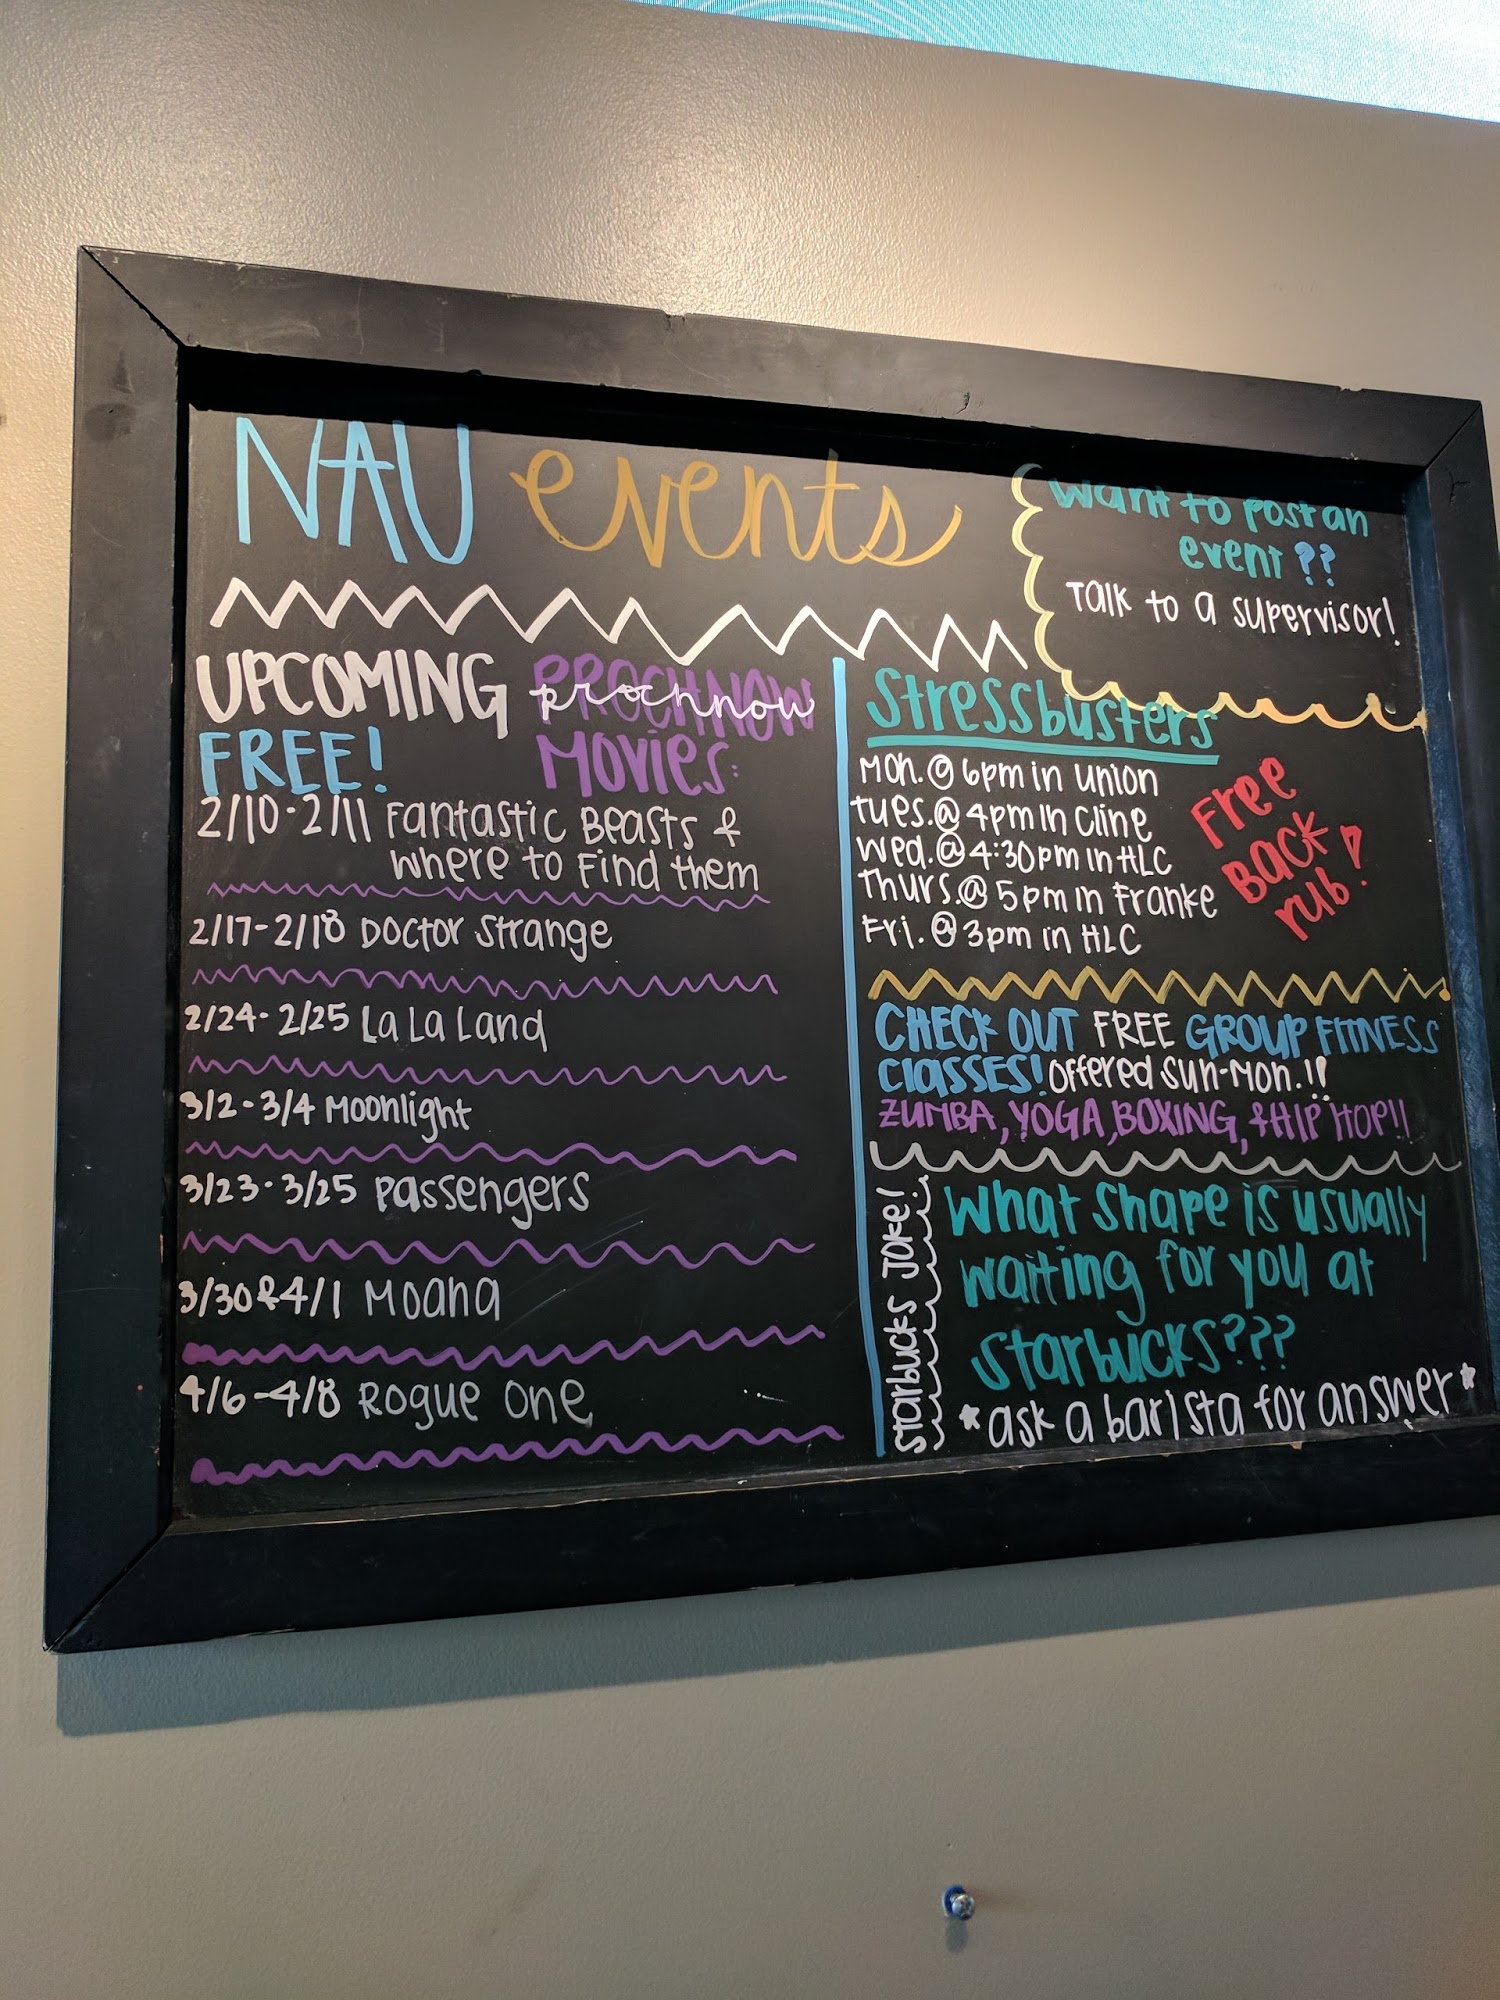 NAU events
Want to post an
event ??
Talk to a supervisor!
UPCOMING PROCHNOW
prochnow
FREE! MOVIES:
2/10-2/11 Fantastic Beasts &
Where to Find them
2/17-2/18 Doctor Strange
2/24-2/25 La La Land
3/2-3/4 Moonlight
3/23-3/25 Passengers
3/30&4/1 Moana
4/6-4/8 Rogue One
Stressbusters
Mon. @ 6pm in Union
Tues. @ 4pm in Cline
Wed. @ 4:30pm in HLC
Thurs. @ 5pm in Franke
Fri. @ 3pm in HLC
Free
Back
rub!
CHECK OUT FREE GROUP FITNESS
CLASSES! Offered Sun-Mon.!!
ZUMBA, YOGA, BOXING, & HIP HOP!!
Starbucks Joke!
What shape is usually
waiting for you at
Starbucks???
*ask a barista for answer*